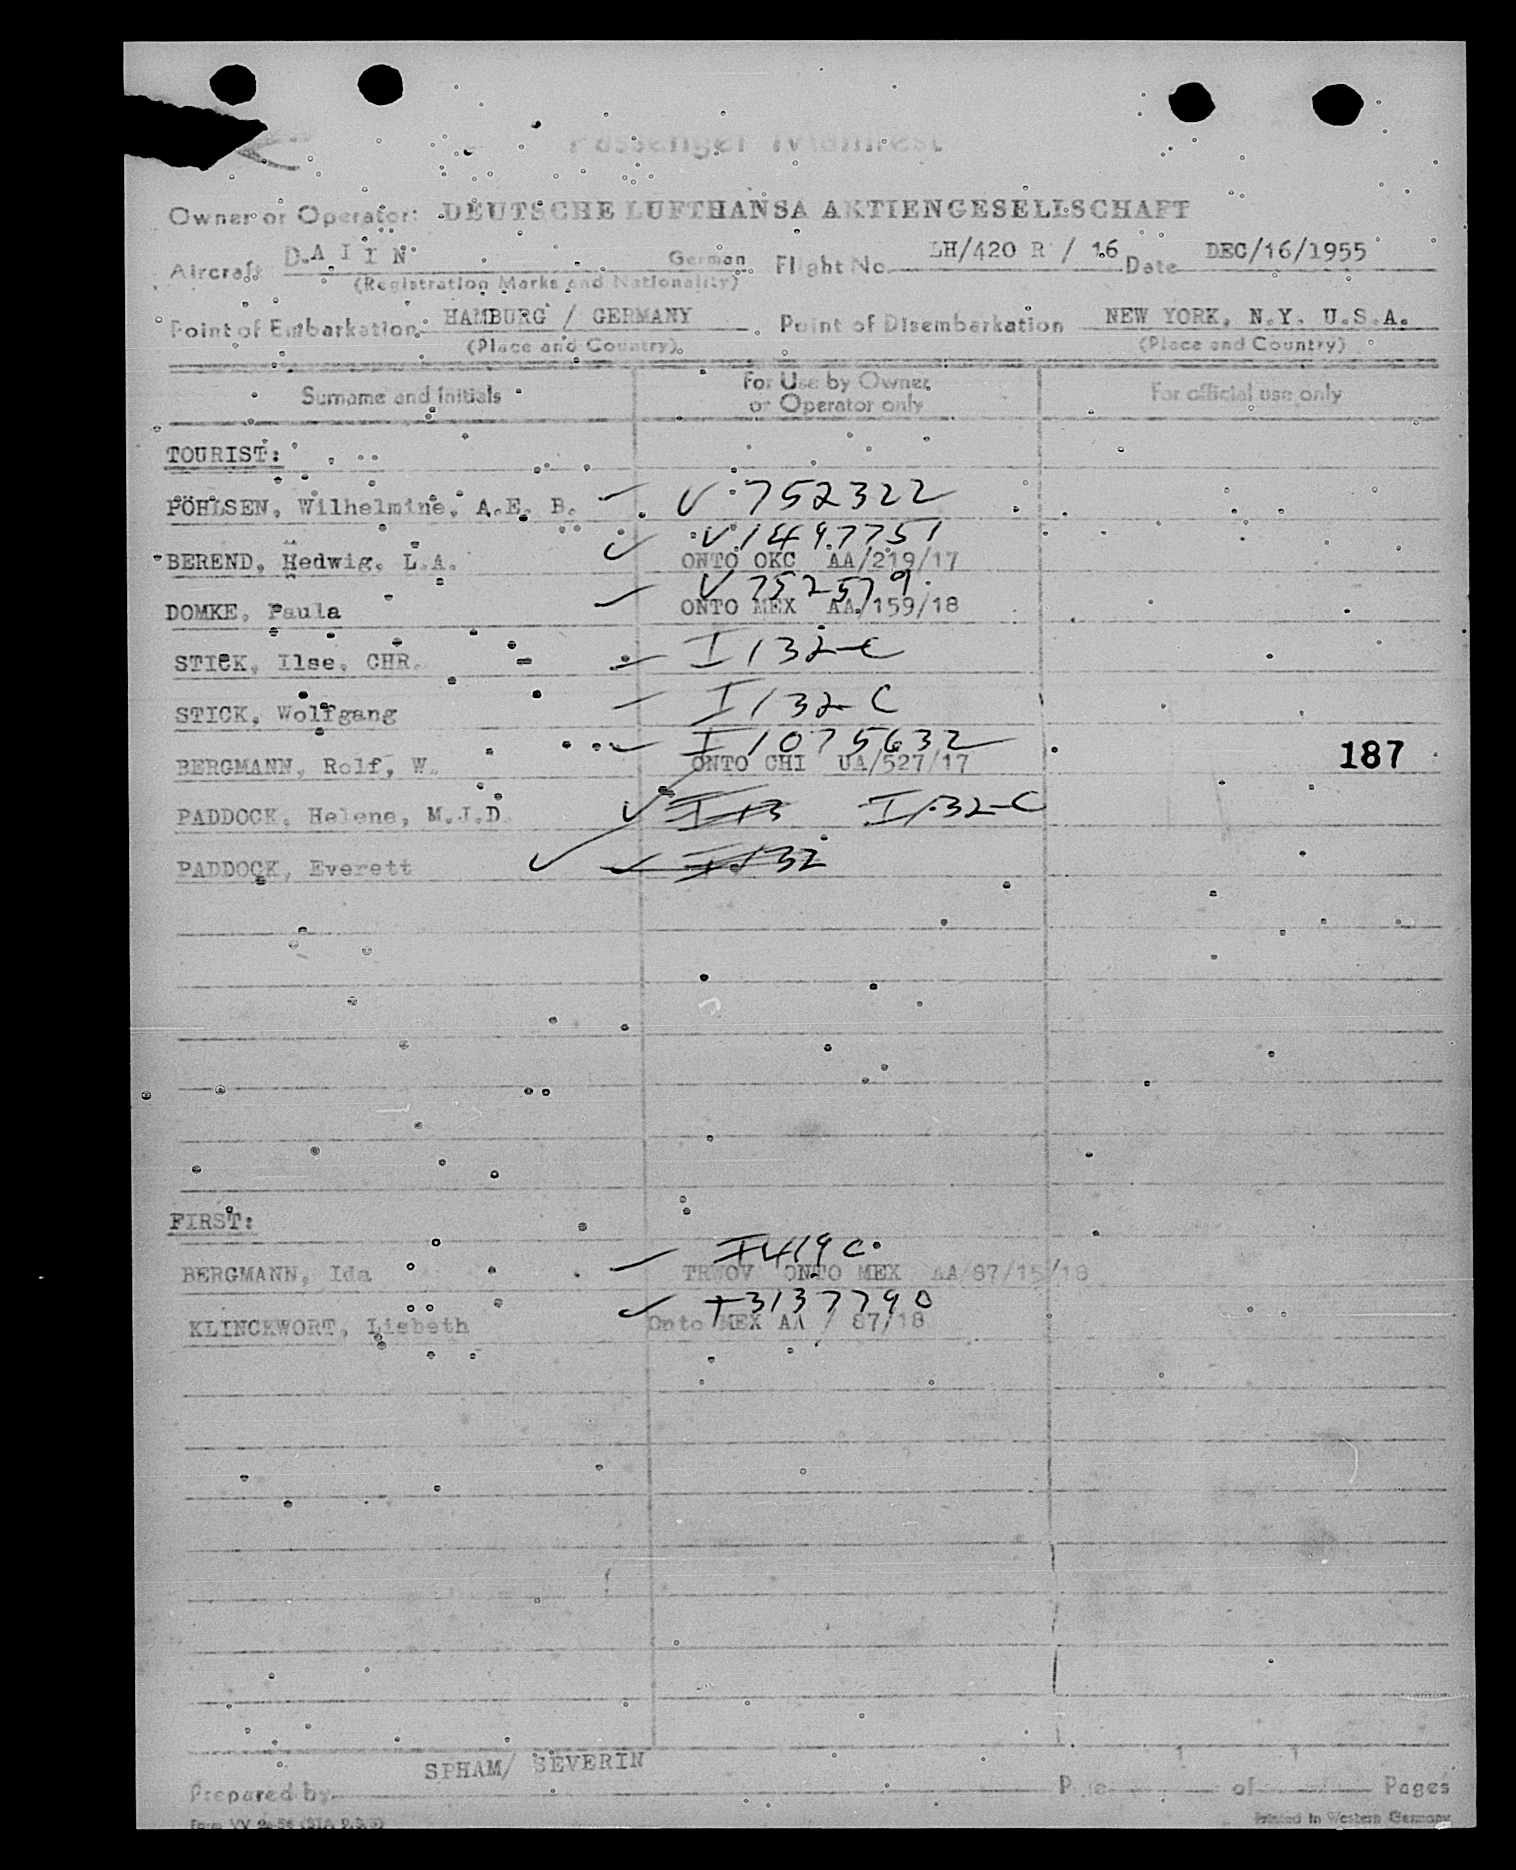 Passenger Manifest
Owner or Operator: DEUTSCHE LUFTHANSA AKTIENGESELLSCHAFT
Aircraft D.A I I N German Flight No. LH/420 R / 16 Date DEC/16/1955
(Registration Marks and Nationality)
Point of Embarkation: HAMBURG / GERMANY Point of Disembarkation NEW YORK, N.Y. U.S.A.
(Place and Country) (Place and Country)
Surname and Initials For Use by Owner or Operator only For official use only
TOURIST:
PÖHLSEN, Wilhelmine, A.E. B. V 752322
V 1497751
BEREND, Hedwig, L.A. ONTO OKC AA/219/17
V 752579
DOMKE, Paula ONTO MEX AA/159/18
STICK, Ilse, CHR. I 132-C
STICK, Wolfgang I 132 C
I 1075632
BERGMANN, Rolf, W. ONTO CHI UA/527/17 187
PADDOCK, Helene, M.J.D. I 13 I 132-C
PADDOCK, Everett I 132
FIRST:
I 419 C
BERGMANN, Ida ONTO MEX AA/87/15/18
3137790
KLINCKWORT, Lisbeth Onto MEX AA / 87/18
Prepared by SPHAM/ SEVERIN Page 1 of 1 Pages
Printed in Western Germany